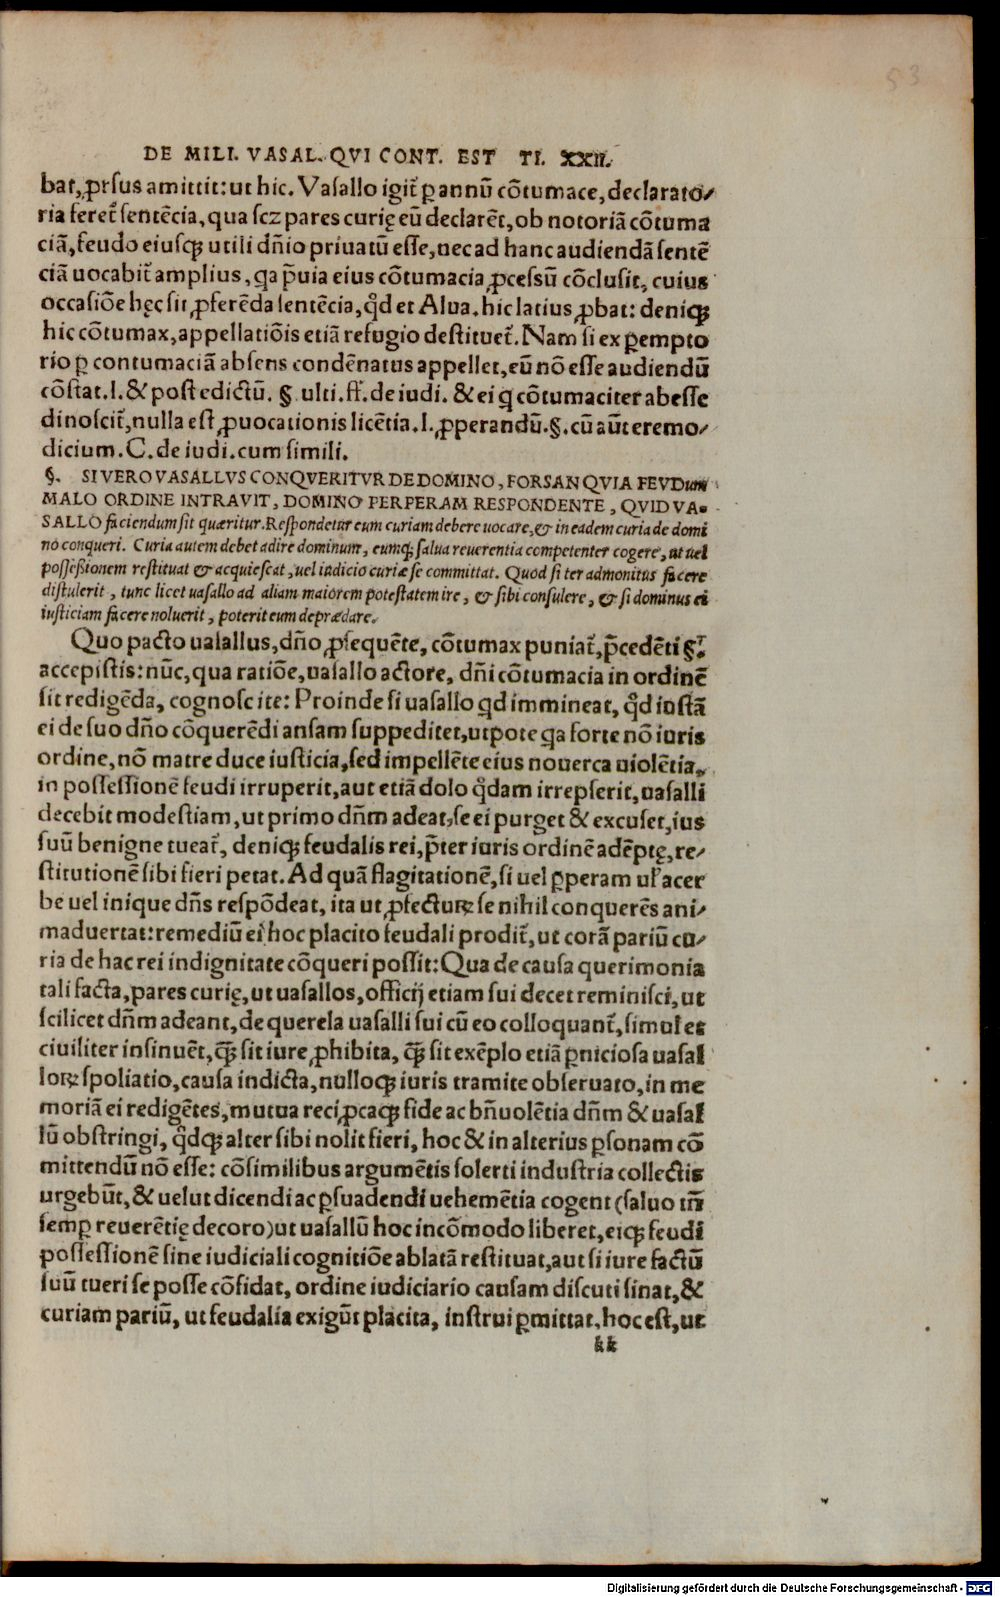 53
DE MILI. VASAL. QVI CONT. EST TI. XXII.
bat, ꝓrsus amittit: ut hic. Vasallo igit᷑ ꝑ annũ cõtumace, declarato⸗
ria feret᷑ sentẽcia, qua scz pares curię eũ declarẽt, ob notoriã cõtuma
ciã, feudo eiusqꝫ utili dñio priuatũ esse, nec ad hanc audiendã sentẽ
ciã uocabit᷑ amplius, qa p̃uia eius cõtumacia ꝓcessũ cõclusit, cuius
occasiõe hęc sit ꝓferẽda sentẽcia, qd̃ et Alua. hic latius ꝓbat: deniqꝫ
hic cõtumax, appellatiõis etiã refugio destituet᷑. Nam si ex ꝑempto
rio ꝑ contumaciã absens condẽnatus appellet, eũ nõ esse audiendũ
cõstat. l. & post edictũ. §. ulti. ff. de iudi. & ei q cõtumaciter abesse
dinoscit᷑, nulla est ꝓuocationis licẽtia. l. ꝓperandũ. §. cũ aũt eremo⸗
dicium. C. de iudi. cum simili.
§. SI VERO VASALLVS CONQVERITVR DE DOMINO, FORSAN QVIA FEVDum
MALO ORDINE INTRAVIT, DOMINO PERPERAM RESPONDENTE, QVID VA⸗
SALLO faciendum sit quæritur. Respondetur eum curiam debere uocare, & in eadem curia de domi
no conqueri. Curia autem debet adire dominum, eumqꝫ salua reuerentia competenter cogere, ut uel
possessionem restituat & acquiescat, uel iudicio curiæ se committat. Quod si ter admonitus facere
distulerit, tunc licet uasallo ad aliam maiorem potestatem ire, & sibi consulere, & si dominus ei
iusticiam facere noluerit, poterit eum deprædare.
Quo pacto uasallus, dño ꝓsequẽte, cõtumax puniat᷑, p̃cedẽti §.
accepistis: nũc, qua ratiõe, uasallo actore, dñi cõtumacia in ordinẽ
sit redigẽda, cognoscite: Proinde si uasallo qd immineat, qd̃ iustã
ei de suo dño cõquerẽdi ansam suppeditet, utpote qa forte nõ iuris
ordine, nõ matre duce iusticia, sed impellẽte eius nouerca uiolẽtia,
in possessionẽ feudi irruperit, aut etiã dolo qd̃am irrepserit, uasalli
decebit modestiam, ut primo dñm adeat, se ei purget & excuset, ius
suũ benigne tueat᷑, deniqꝫ feudalis rei, p̃ter iuris ordinẽ adẽptę, re⸗
stitutionẽ sibi fieri petat. Ad quã flagitationẽ, si uel ꝑperam uľ acer
be uel inique dñs respõdeat, ita ut ꝓfecturꝝ se nihil conquerẽs ani⸗
maduertat: remediũ ei hoc placito feudali prodit᷑, ut corã pariũ cu⸗
ria de hac rei indignitate cõqueri possit: Qua de causa querimonia
tali facta, pares curię, ut uasallos, officij etiam sui decet reminisci, ut
scilicet dñm adeant, de querela uasalli sui cũ eo colloquant᷑, simul et
ciuiliter insinuẽt, qꝫ̃ sit iure ꝓhibita, qꝫ̃ sit exẽplo etiã ꝑniciosa uasal
lorꝝ spoliatio, causa indicta, nulloqꝫ iuris tramite obseruato, in me
moriã ei redigẽtes, mutua reciꝓcaqꝫ fide ac bñuolẽtia dñm & uasal
lũ obstringi, qd̃qꝫ alter sibi nolit fieri, hoc & in alterius ꝑsonam cõ
mittendũ nõ esse: cõsimilibus argumẽtis solerti industria collectis
urgebũt, & uelut dicendi ac ꝑsuadendi uehemẽtia cogent (saluo tñ
semꝑ reuerẽtię decoro) ut uasallũ hoc incõmodo liberet, eiqꝫ feudi
possessionẽ sine iudiciali cognitiõe ablatã restituat, aut si iure factũ
suũ tueri se posse cõfidat, ordine iudiciario causam discuti sinat, &
curiam pariũ, ut feudalia exigũt placita, instrui ꝑmittat, hoc est, ut
kk
Digitalisierung gefördert durch die Deutsche Forschungsgemeinschaft - DFG